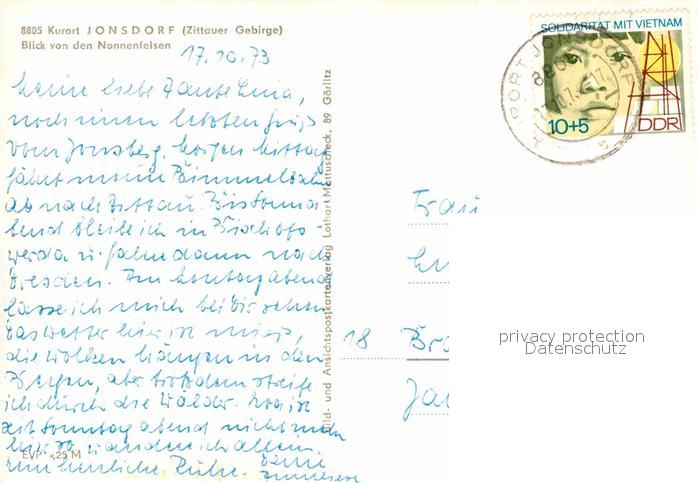 8805 Kurort JONSDORF (Zittauer Gebirge)
Blick von den Nonnenfelsen
17.10.73
Meine liebe Tante Lina,
noch einen letzten Gruß
vom Jonsberg. Morgen Mittag
fährt meine Bimmelbahn
ab nach Zittau. Bis Sonna-
bend bleibe ich in Bischofs-
werda u. fahre dann nach
Dresden. Am Montag abend
lasse ich mich bei Dir sehen.
Das Wetter hier ist mies,
die Wolken hängen in den
Bergen, aber trotzdem streife
ich durch die Wälder.
seit Sonntag abend nicht mehr
hier, so wandere ich allein.
Eine herrliche Ruhe. Deine
EVP -,25 M
Bild- und Ansichtspostkartenverlag Lothar Mattuscheck, 89 Görlitz
SOLIDARITÄT MIT VIETNAM
10+5
DDR
KURORT JONSDORF
Frau
18
privacy protection
Datenschutz